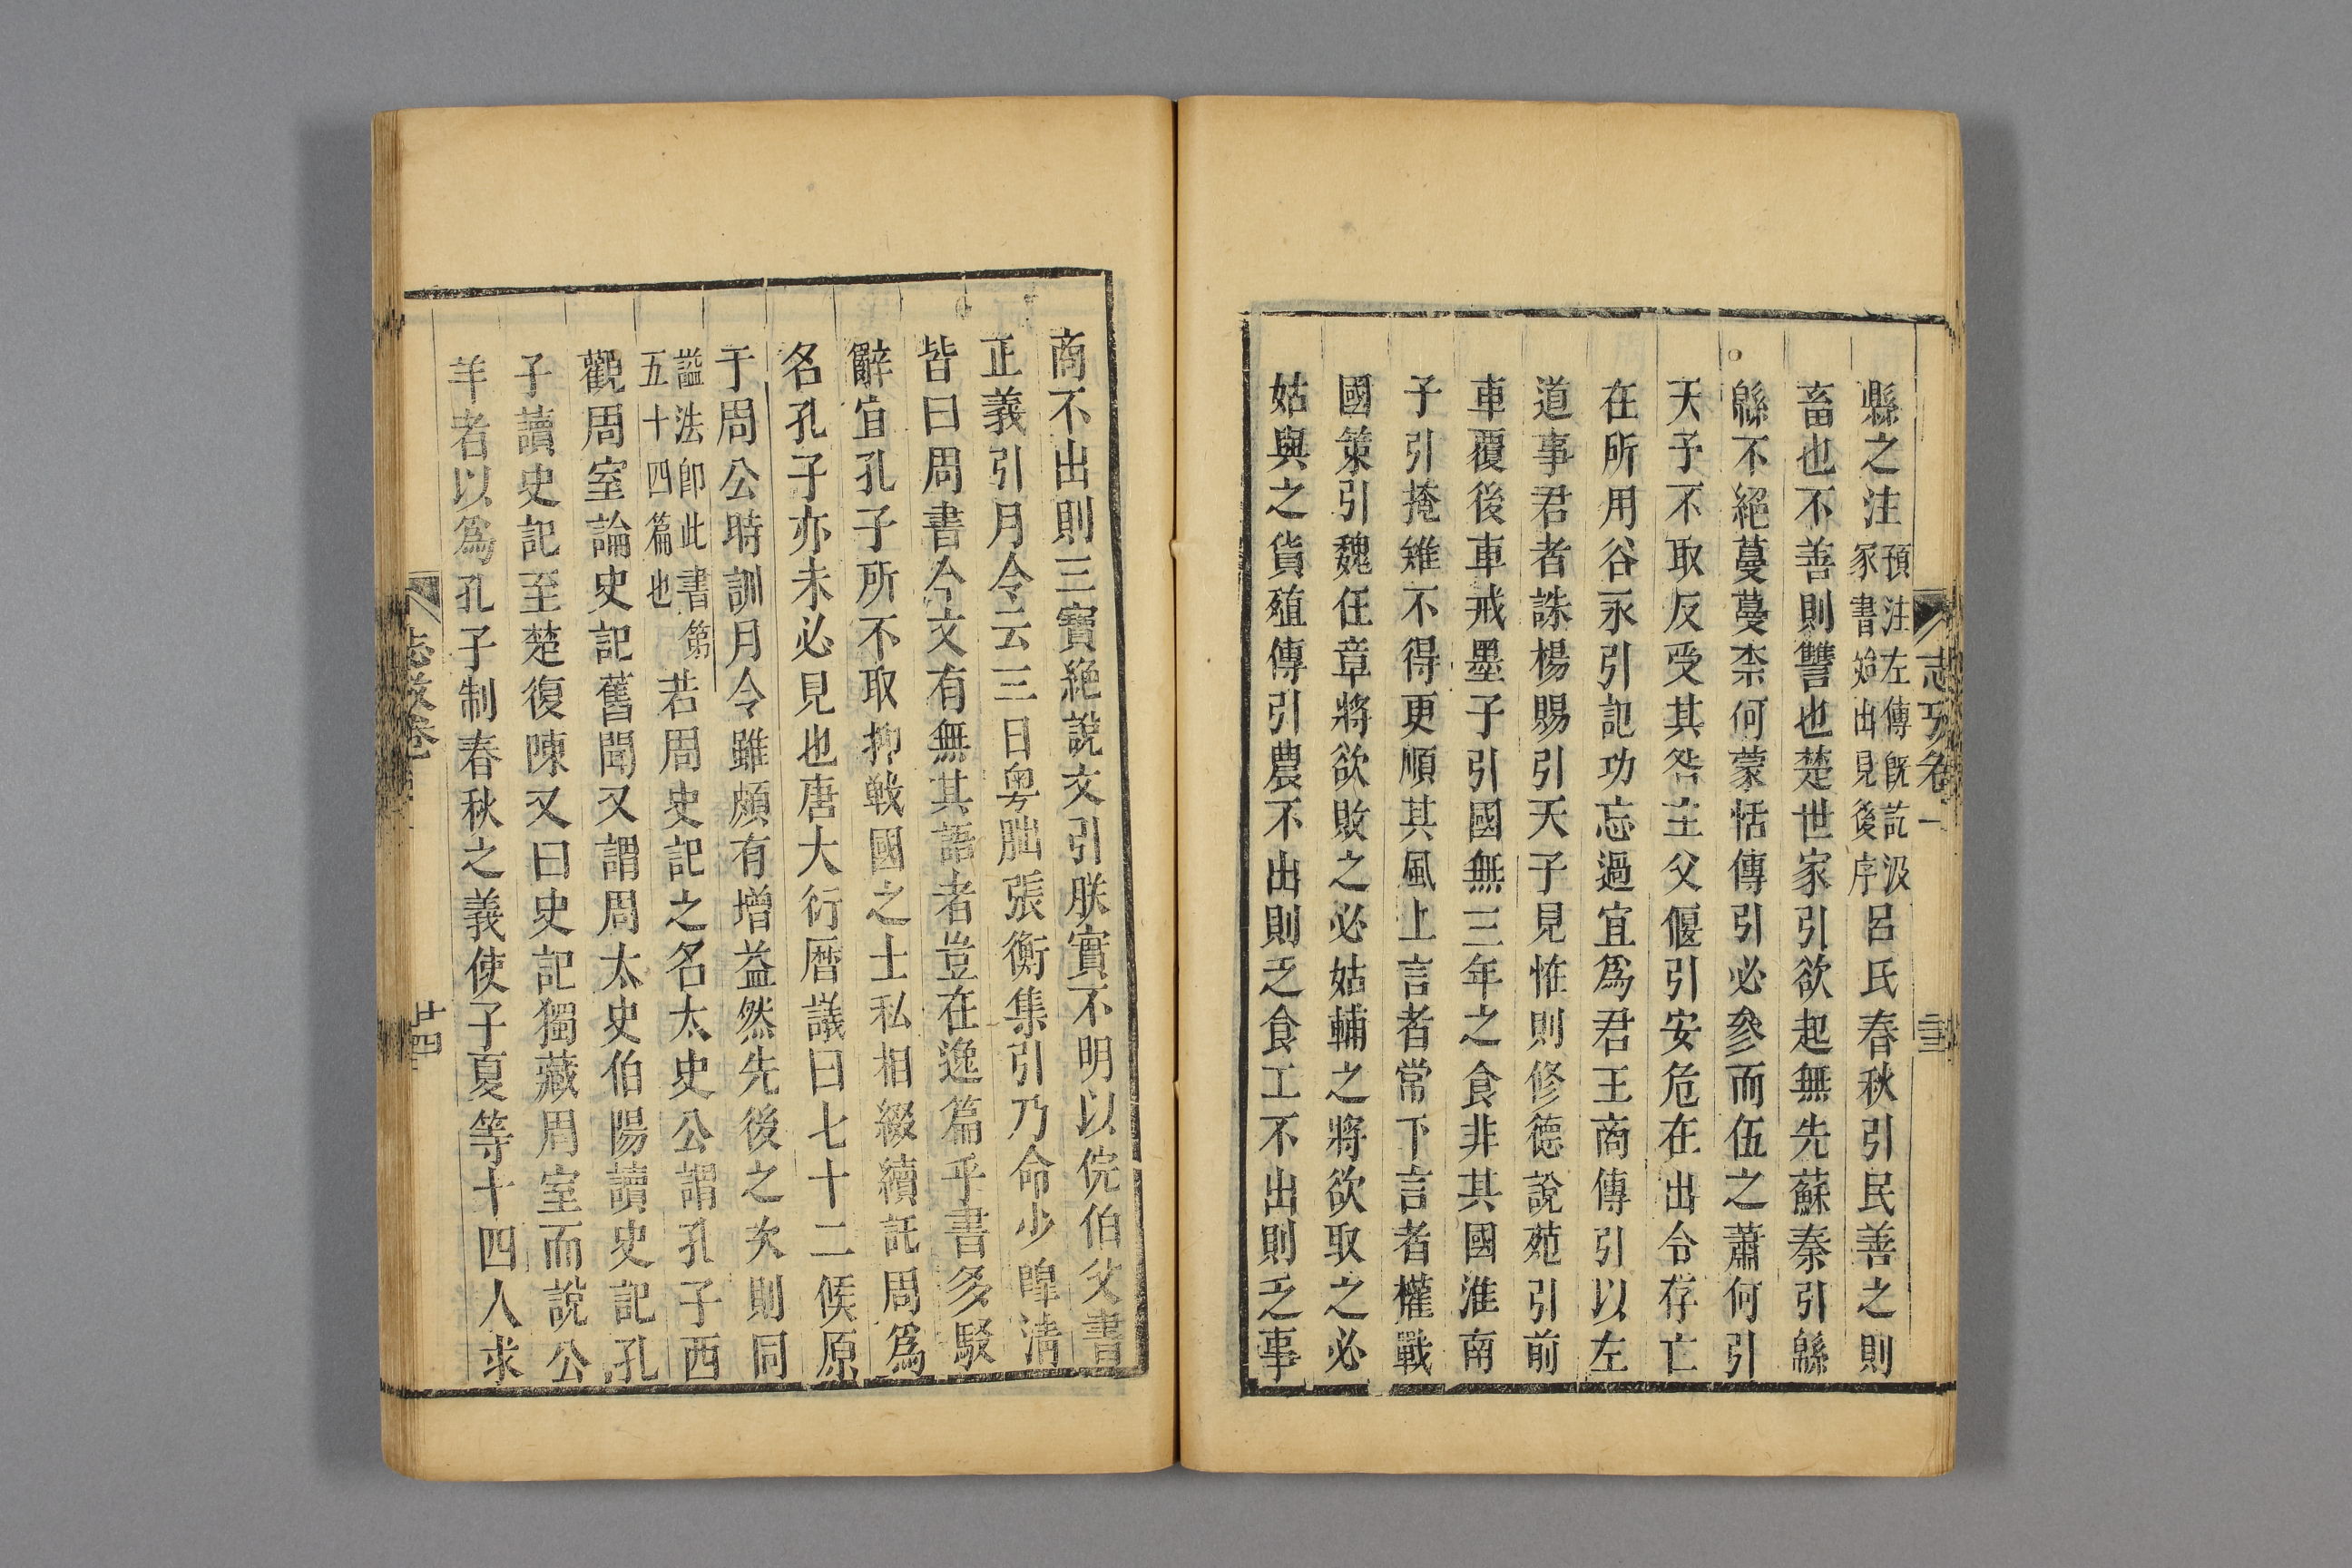 志攷卷一
縣之注預注左傳旣訖汲冢書始出見後序呂氏春秋引民善之則
畜也不善則讐也楚世家引欲起無先蘇秦引緜
緜不絕蔓蔓柰何蒙恬傳引必參而伍之蕭何引
天予不取反受其咎主父偃引安危在出令存亡
在所用谷永引記功忘過宜爲君王商傳引以左
道事君者誅楊賜引天子見怪則修德說苑引前
車覆後車戒墨子引國無三年之食非其國淮南
子引掩雉不得更順其風上言者常下言者權戰
國策引魏任章將欲敗之必姑輔之將欲取之必
姑與之貨殖傳引農不出則乏食工不出則乏事
商不出則三寶絕說文引朕實不明以侊伯父書
正義引月令云三日粤朏張衡集引乃命少皥淸
皆曰周書今文有無其語者豈在逸篇乎書多駁
辭宜孔子所不取抑戰國之士私相綴續託周爲
名孔子亦未必見也唐大衍曆議曰七十二候原
于周公時訓月令雖頗有增益然先後之次則同
謚法卽此書第五十四篇也若周史記之名太史公謂孔子西
觀周室論史記舊聞又謂周太史伯陽讀史記孔
子讀史記至楚復陳又曰史記獨藏周室而說公
羊者以爲孔子制春秋之義使子夏等十四人求
志攷卷
十四